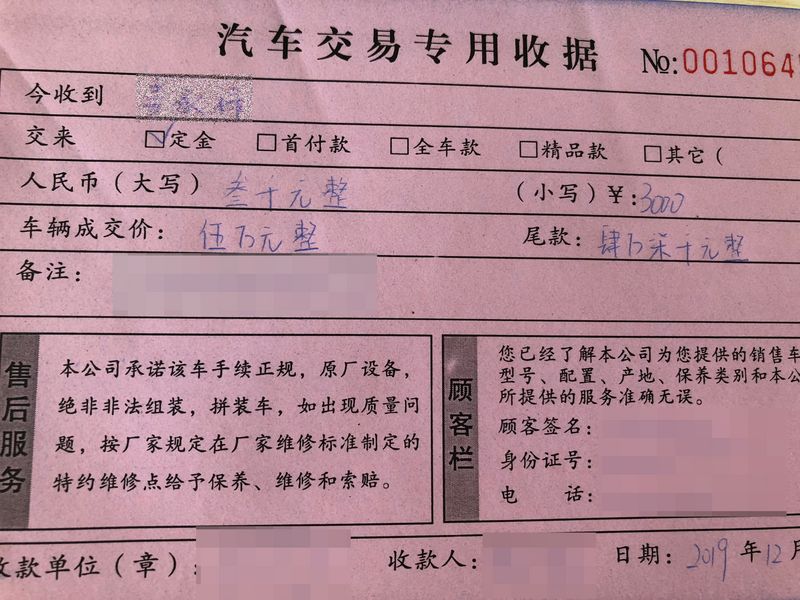 汽车交易专用收据 №:001064
今收到
交来 ☑定金 □首付款 □全车款 □精品款 □其它(
人民币(大写) 叁千元整 (小写)¥:3000
车辆成交价: 伍万元整 尾款: 肆万柒千元整
备注:
售后服务
本公司承诺该车手续正规,原厂设备,
绝非非法组装,拼装车,如出现质量问
题,按厂家规定在厂家维修标准制定的
特约维修点给予保养、维修和索赔。
顾客栏
您已经了解本公司为您提供的销售车
型号、配置、产地、保养类别和本公
所提供的服务准确无误。
顾客签名:
身份证号:
电 话:
收款单位(章): 收款人: 日期: 2019 年 12 月